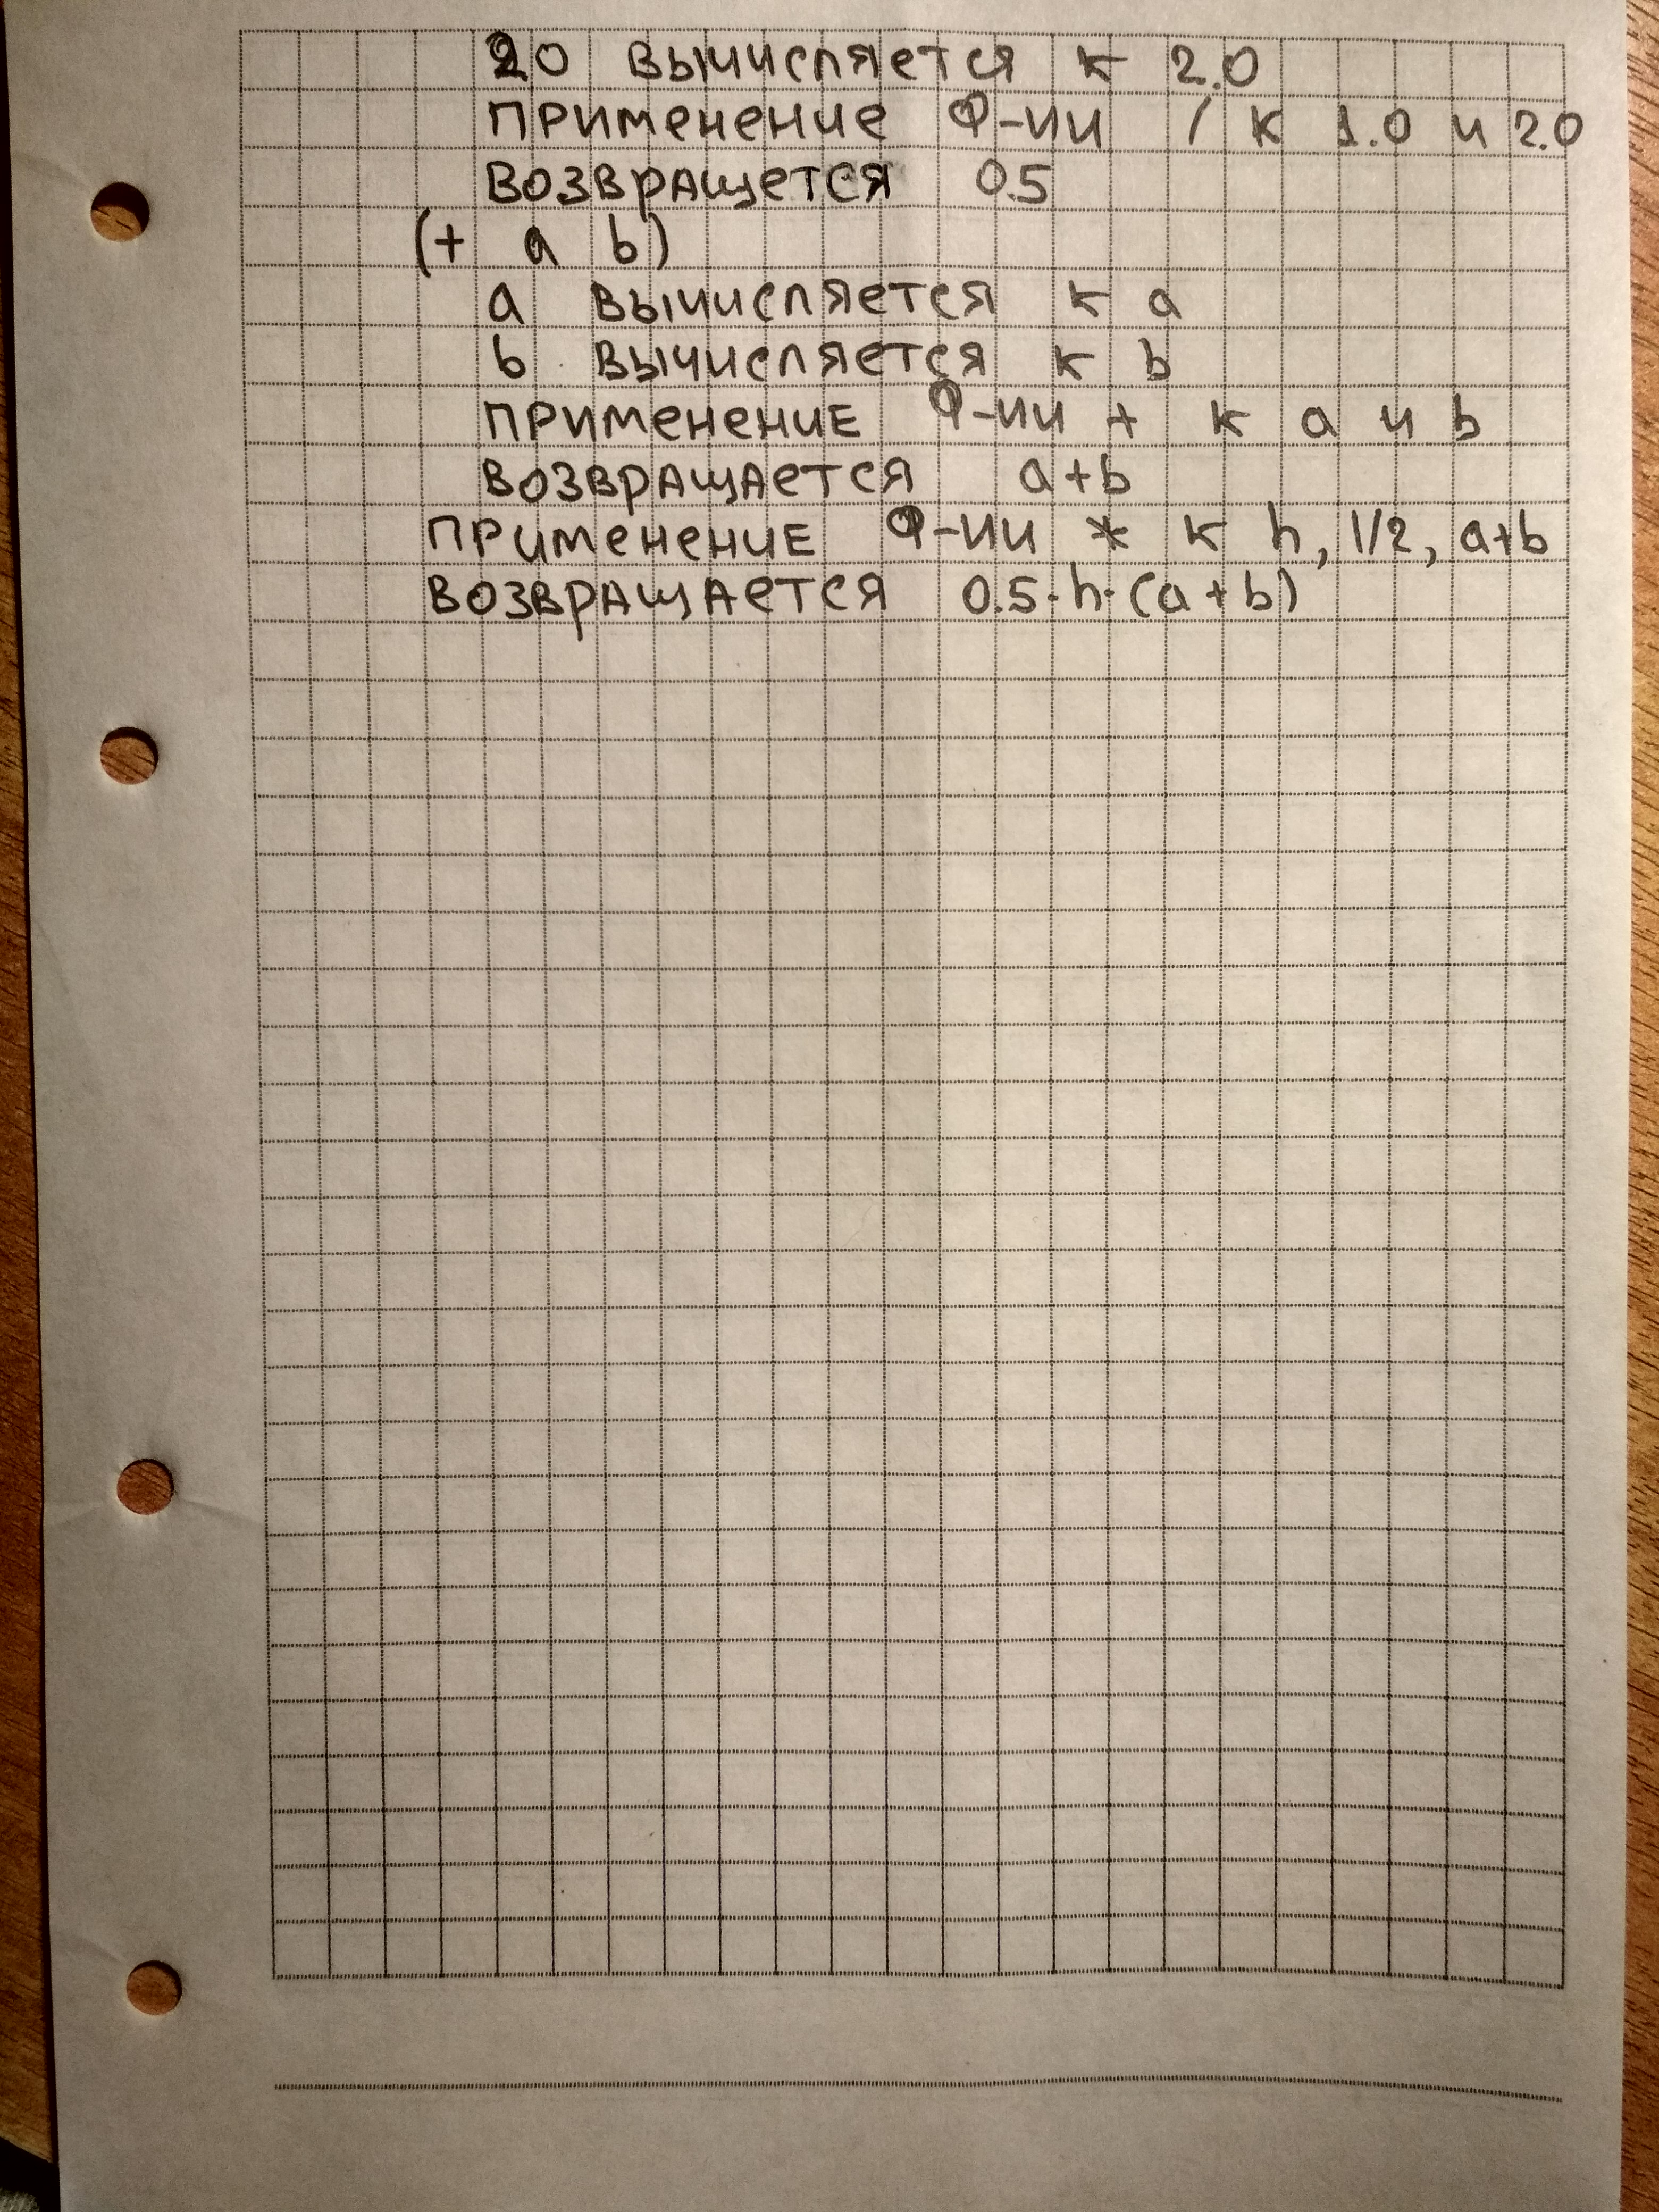 20 вычисляется к 2.0
применение ф-ии / к 1.0 и 2.0
возвращется 0.5
(+ a b)
a вычисляется к a
b вычисляется к b
применение ф-ии + к a и b
возвращается a+b
применение ф-ии * к h, 1/2, a+b
возвращается 0.5·h·(a+b)